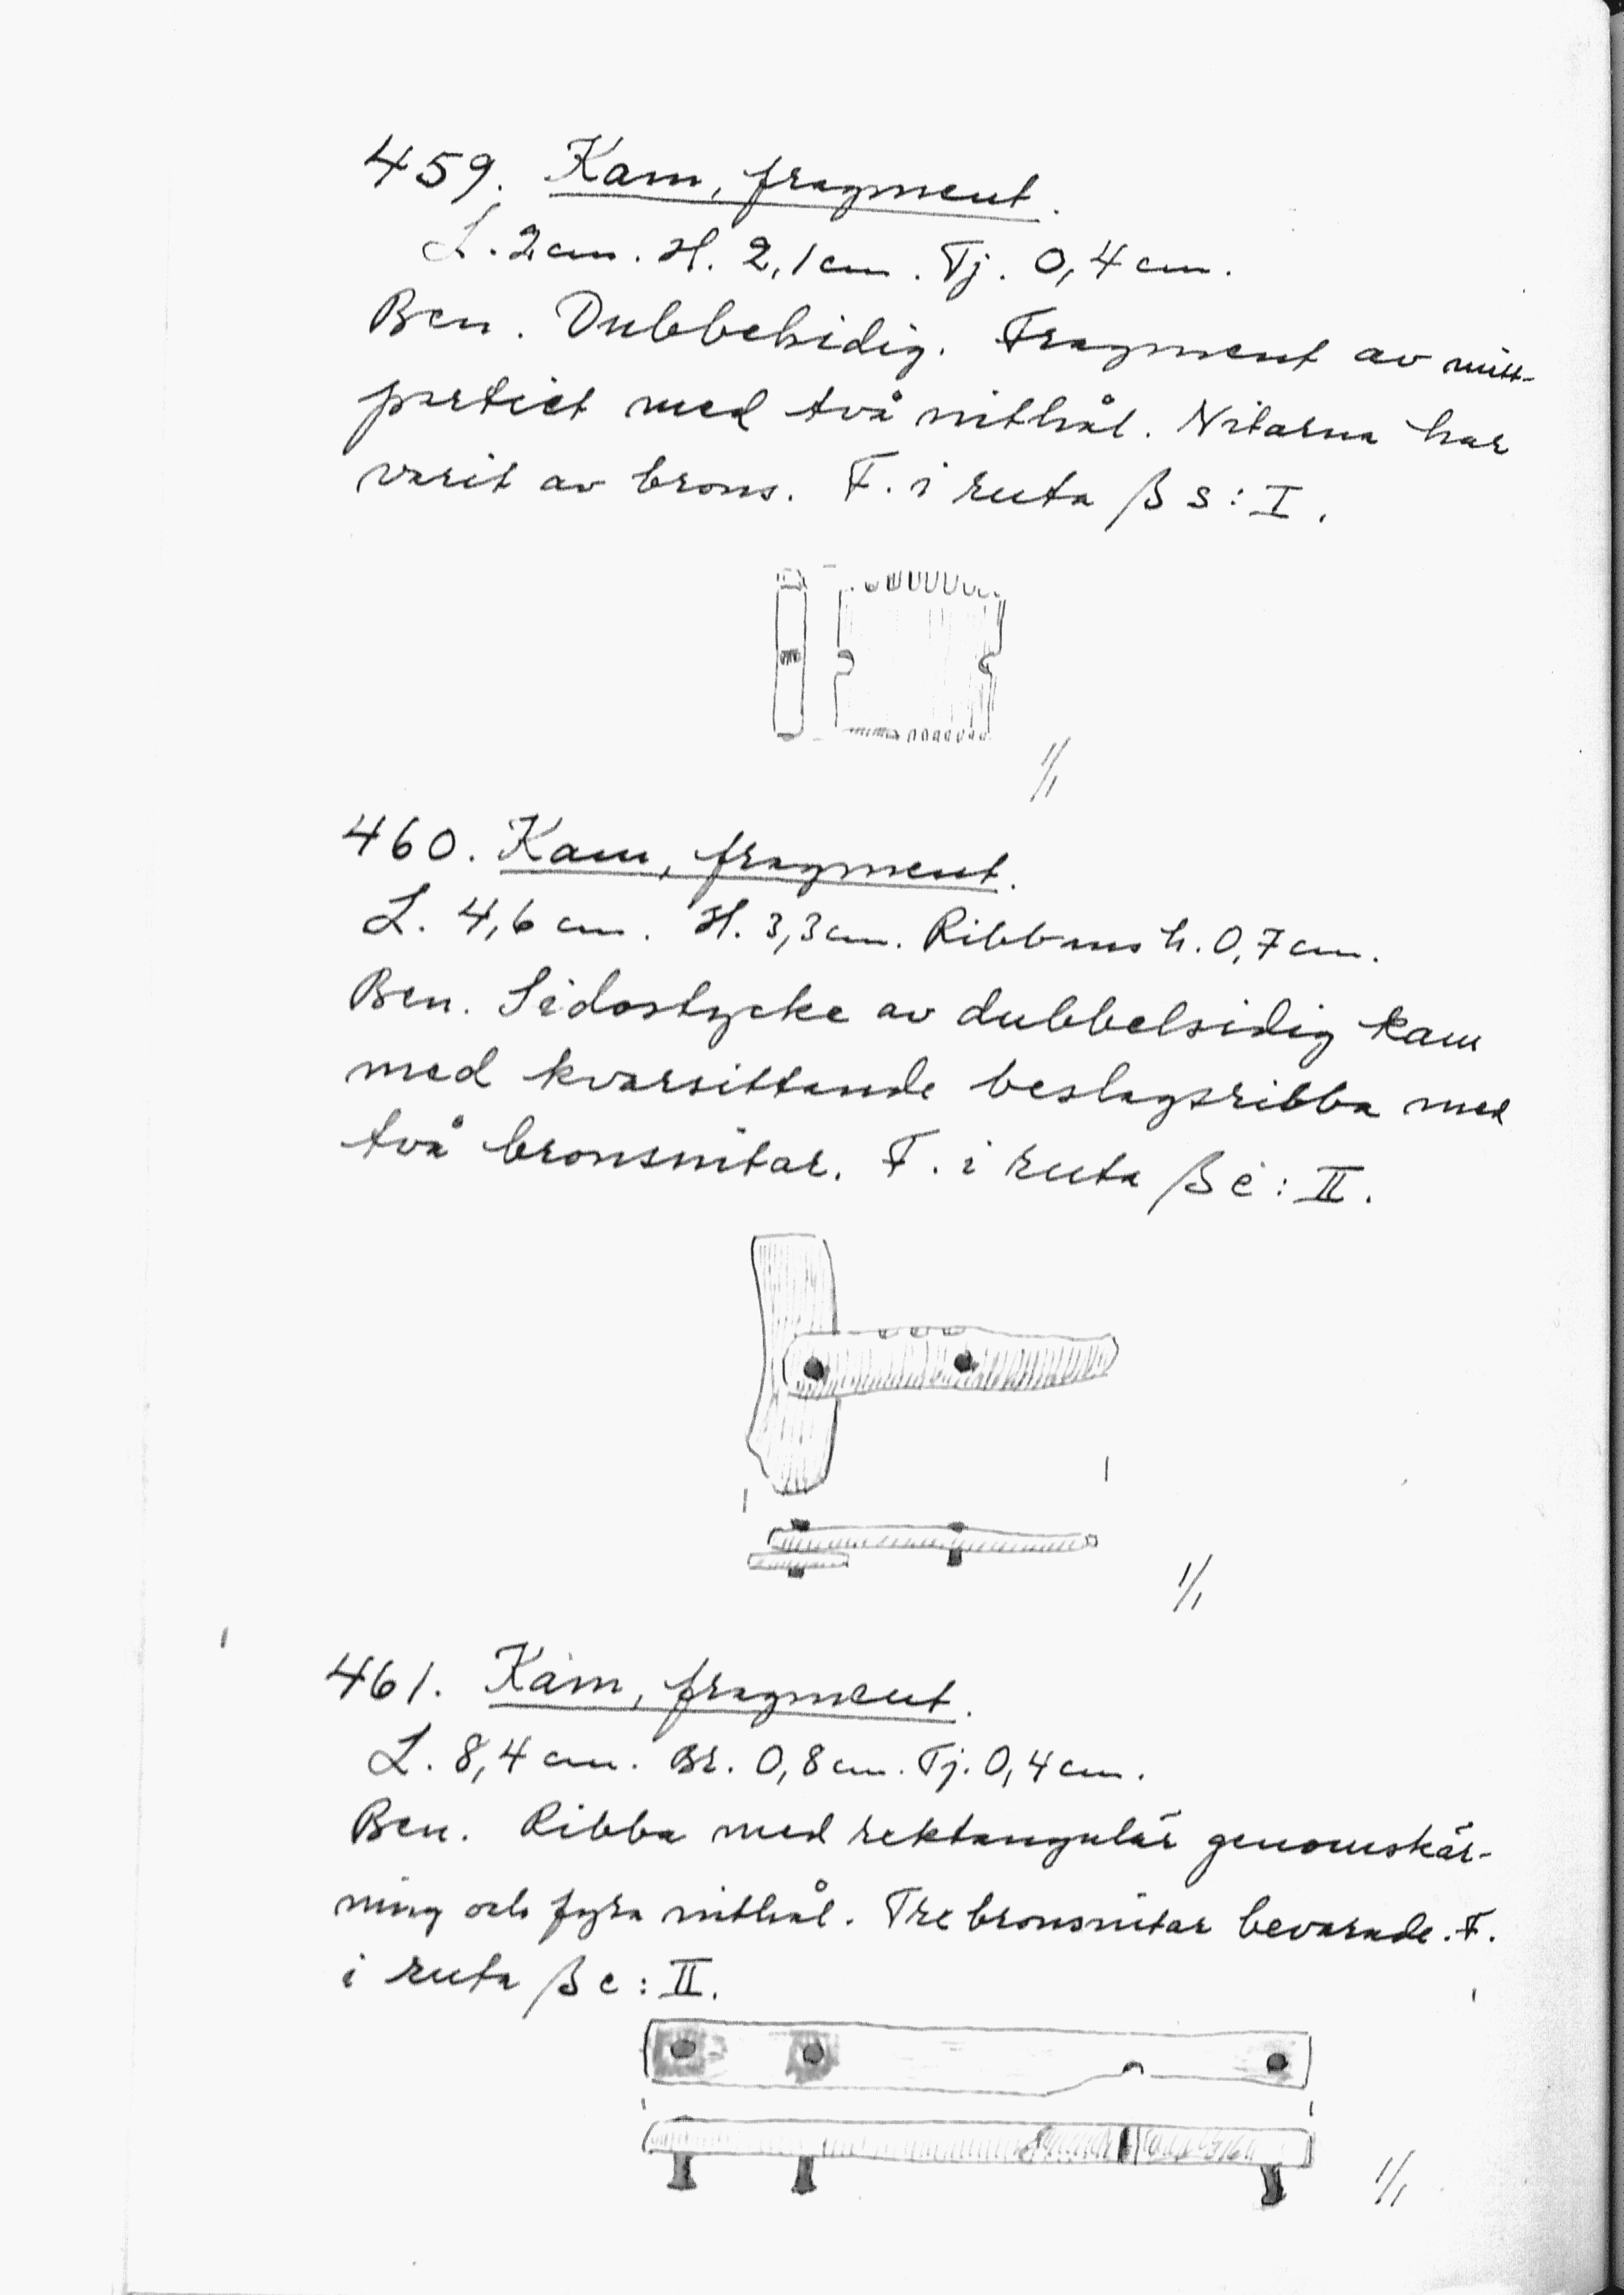 459. Kam, fragment.
L. 2 cm. H. 2,1 cm. Tj. 0,4 cm.
Ben. Dubbelsidig. Fragment av mitt-
partiet med två nithål. Nitarna har
varit av brons. F. i ruta β s: I.
1/1
460. Kam, fragment.
L. 4,6 cm. H. 3,3 cm. Ribbans h. 0,7 cm.
Ben. Sidostycke av dubbelsidig kam
med kvarsittande beslagsribba med
två bronsnitar. F. i ruta β è: II.
1/1
461. Kam, fragment.
L. 8,4 cm. Br. 0,8 cm. Tj. 0,4 cm.
Ben. Ribba med rektangulär genomskär-
ning och fyra nithål. Tre bronsnitar bevarade. F.
i ruta β c: II.
1/1